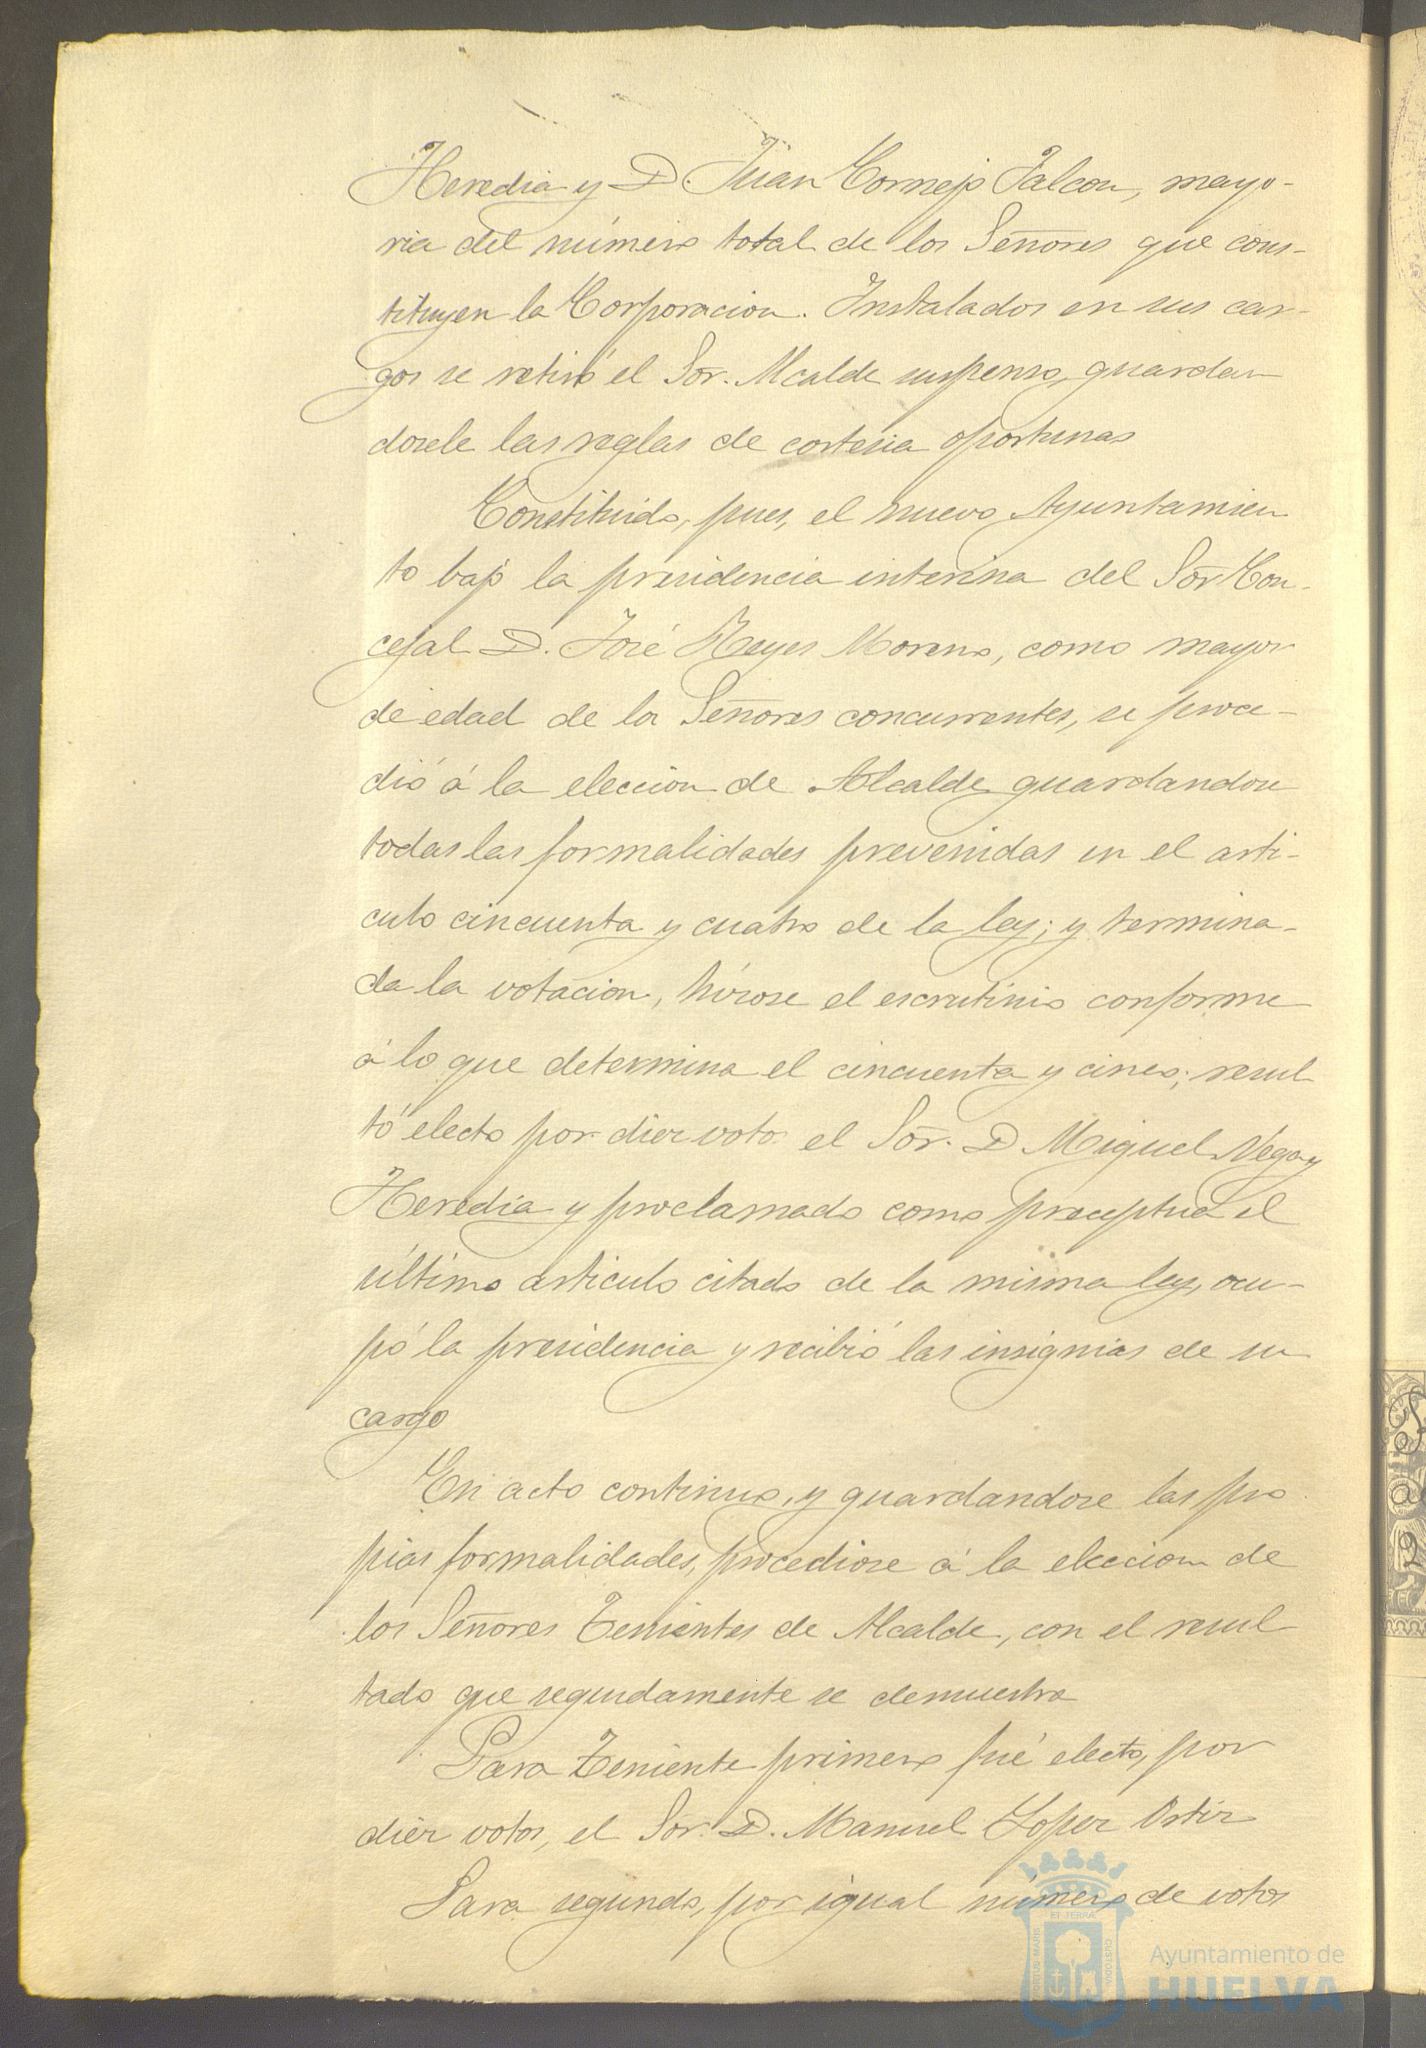 Heredia y D. Juan Cornejo Falcon, mayo-
ria del número total de los Señores que cons-
tituyen la Corporacion. Instalados en sus car-
gos se retiró el Sor. Alcalde suspenso, guardan
dosele las reglas de cortesia oportunas
Constituido, pues, el nuevo Ayuntamien
to bajo la presidencia interina del Sor Con-
cejal D. José Reyes Moreno, como mayor
de edad de los Señores concurrentes, se proce-
dió á la eleccion de Alcalde guardandose
todas las formalidades prevenidas en el arti-
culo cincuenta y cuatro de la ley; y termina-
da la votacion, hízose el escrutinio conforme
á lo que determina el cincuenta y cinco; resul
tó electo por diez votos el Sor. D Miguel Vega y
Heredia y proclamado como preceptua el
último articulo citado de la misma ley, ocu-
pó la presidencia y recibió las insignias de su
cargo
En acto continuo, y guardandose las pro
pias formalidades, procediose á la eleccion de
los Señores Tenientes de Alcalde, con el resul
tado que seguidamente se demuestra
Para Teniente primero fué electo, por
diez votos, el Sor. D. Manuel Lopez Ortiz
Para segundo, por igual número de votos
Ayuntamiento de
HUELVA